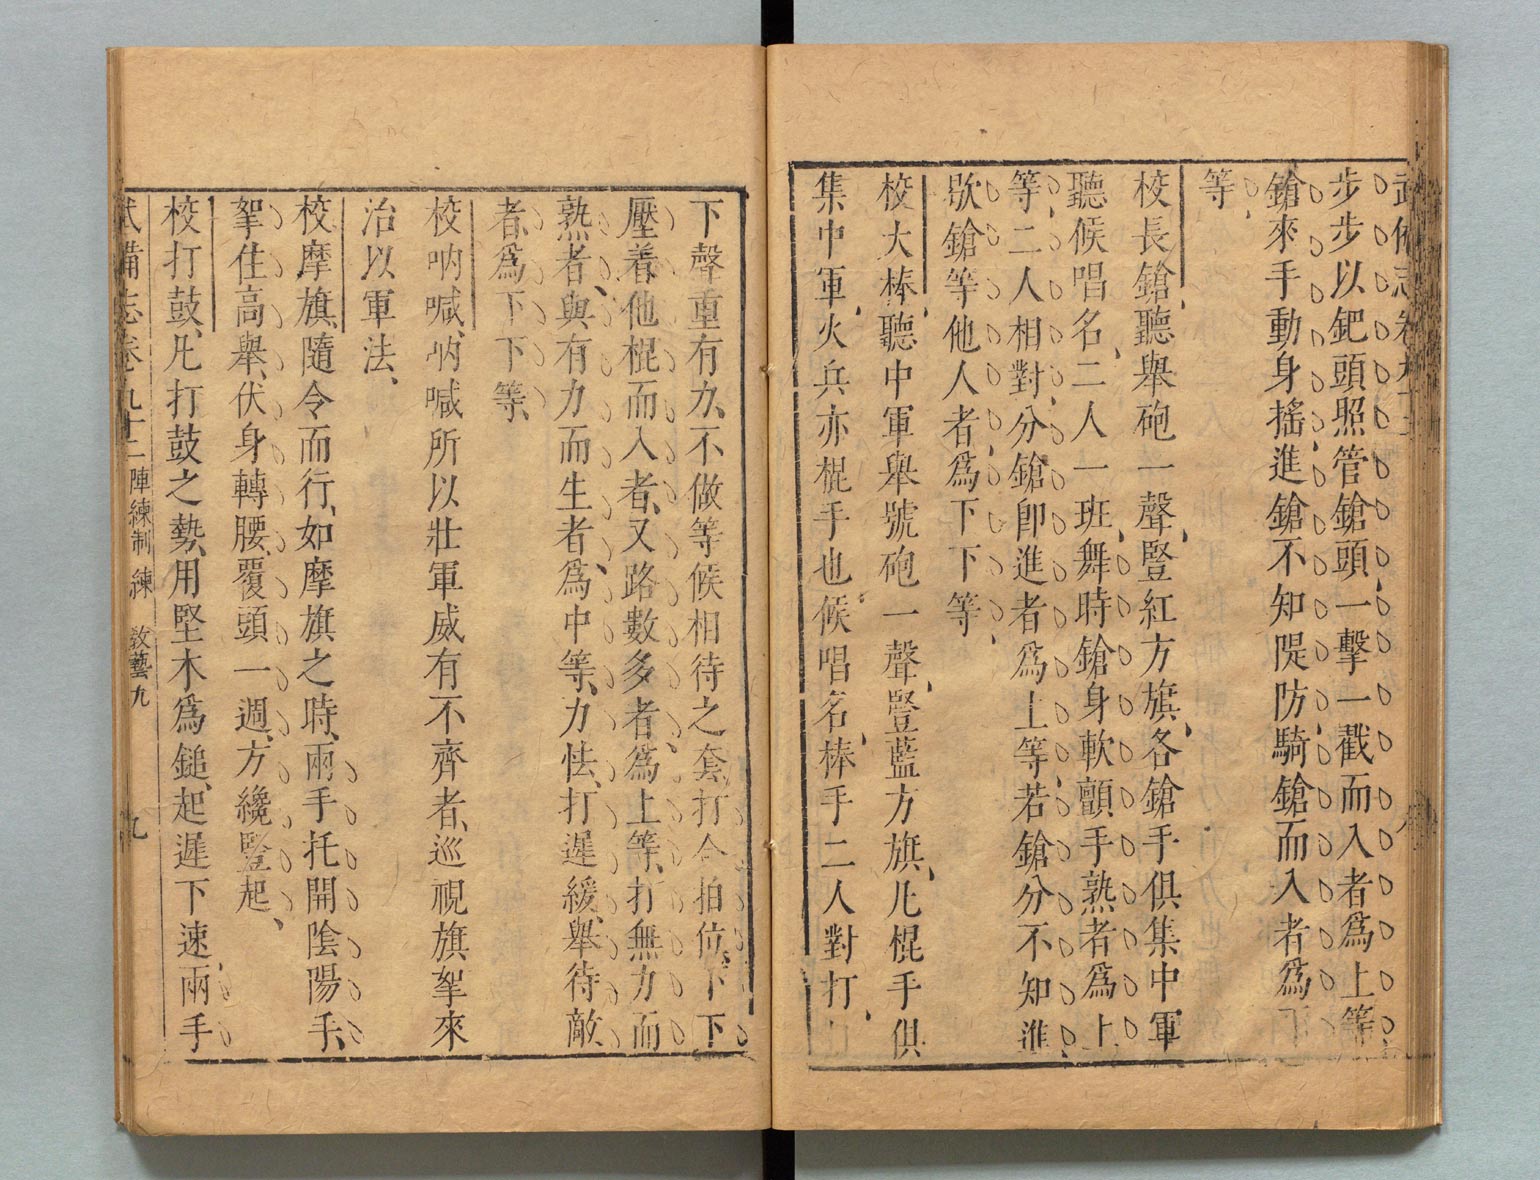 武備志卷九十二
步步以鈀頭照管鎗頭一擊一戳而入者爲上等
鎗來手動身搖進鎗不知隄防騎鎗而入者爲下
等
校長鎗聽舉砲一聲豎紅方旗各鎗手俱集中軍
聽候唱名二人一班舞時鎗身軟顫手熟者爲上
等二人相對分鎗卽進者爲上等若鎗分不知進
欺鎗等他人者爲下下等
校大棒聽中軍舉號砲一聲豎藍方旗凡棍手俱
集中軍火兵亦棍手也候唱名棒手二人對打
下聲重有力不做等候相待之套打合拍位下下
壓着他棍而入者又路數多者爲上等打無力而
熟者與有力而生者爲中等力怯打遲緩舉待敵
者爲下下等
校吶喊吶喊所以壯軍威有不齊者巡視旗拏來
治以軍法
校摩旗隨令而行如摩旗之時兩手托開陰陽手
拏住高舉伏身轉腰覆頭一週方纔豎起
校打鼓凡打鼓之勢用堅木爲鎚起遲下速兩手
武備志卷九十二 陣練制 練 教藝九 九